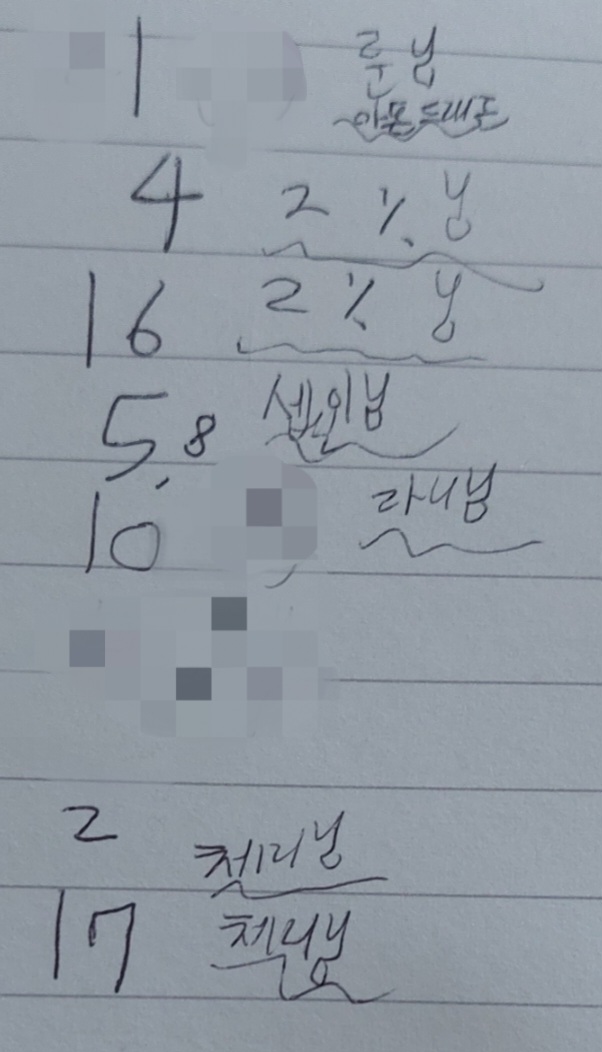 1 루님
아몬드래곤
4 2% 님
16 2% 님
5, 8 셉인님
10 라니님
2 체리님
17 책님